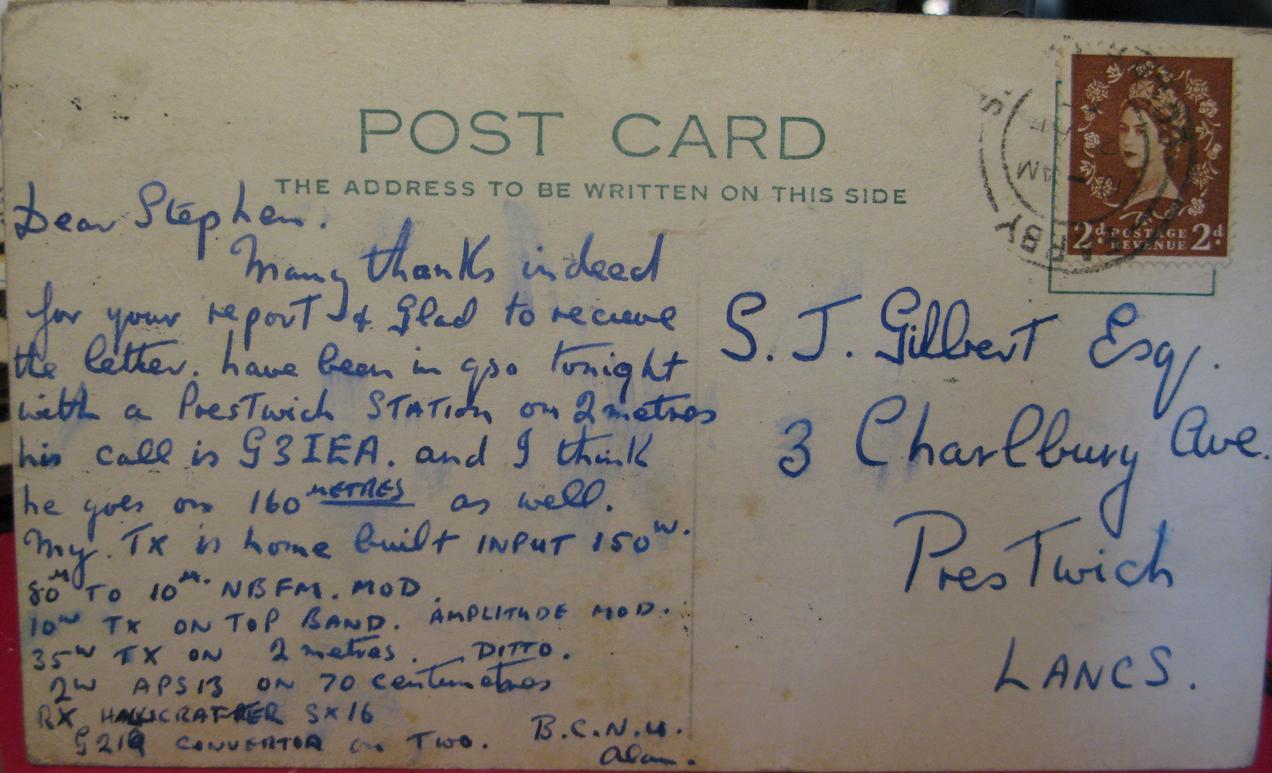 POST CARD
THE ADDRESS TO BE WRITTEN ON THIS SIDE
2d POSTAGE REVENUE 2d
Dear Stephen.
Many thanks indeed
for your report & Glad to recieve
the letter. have been in qso tonight
with a Prestwich STATION on 2 metres
his call is G3IEA. and I think
he goes on 160 METRES as well.
My. TX is home built INPUT 150w.
80M TO 10M. NBFM. MOD.
10W TX ON TOP BAND. AMPLITUDE MOD.
35W TX ON 2 metres. DITTO.
2W APS13 ON 70 centimetres
RX HALLICRAFTER SX16
CONVERTOR on TWO. B.C.N.U.
Alan.
S. J. Gilbert Esq.
3 Charlbury Ave.
Prestwich
LANCS.